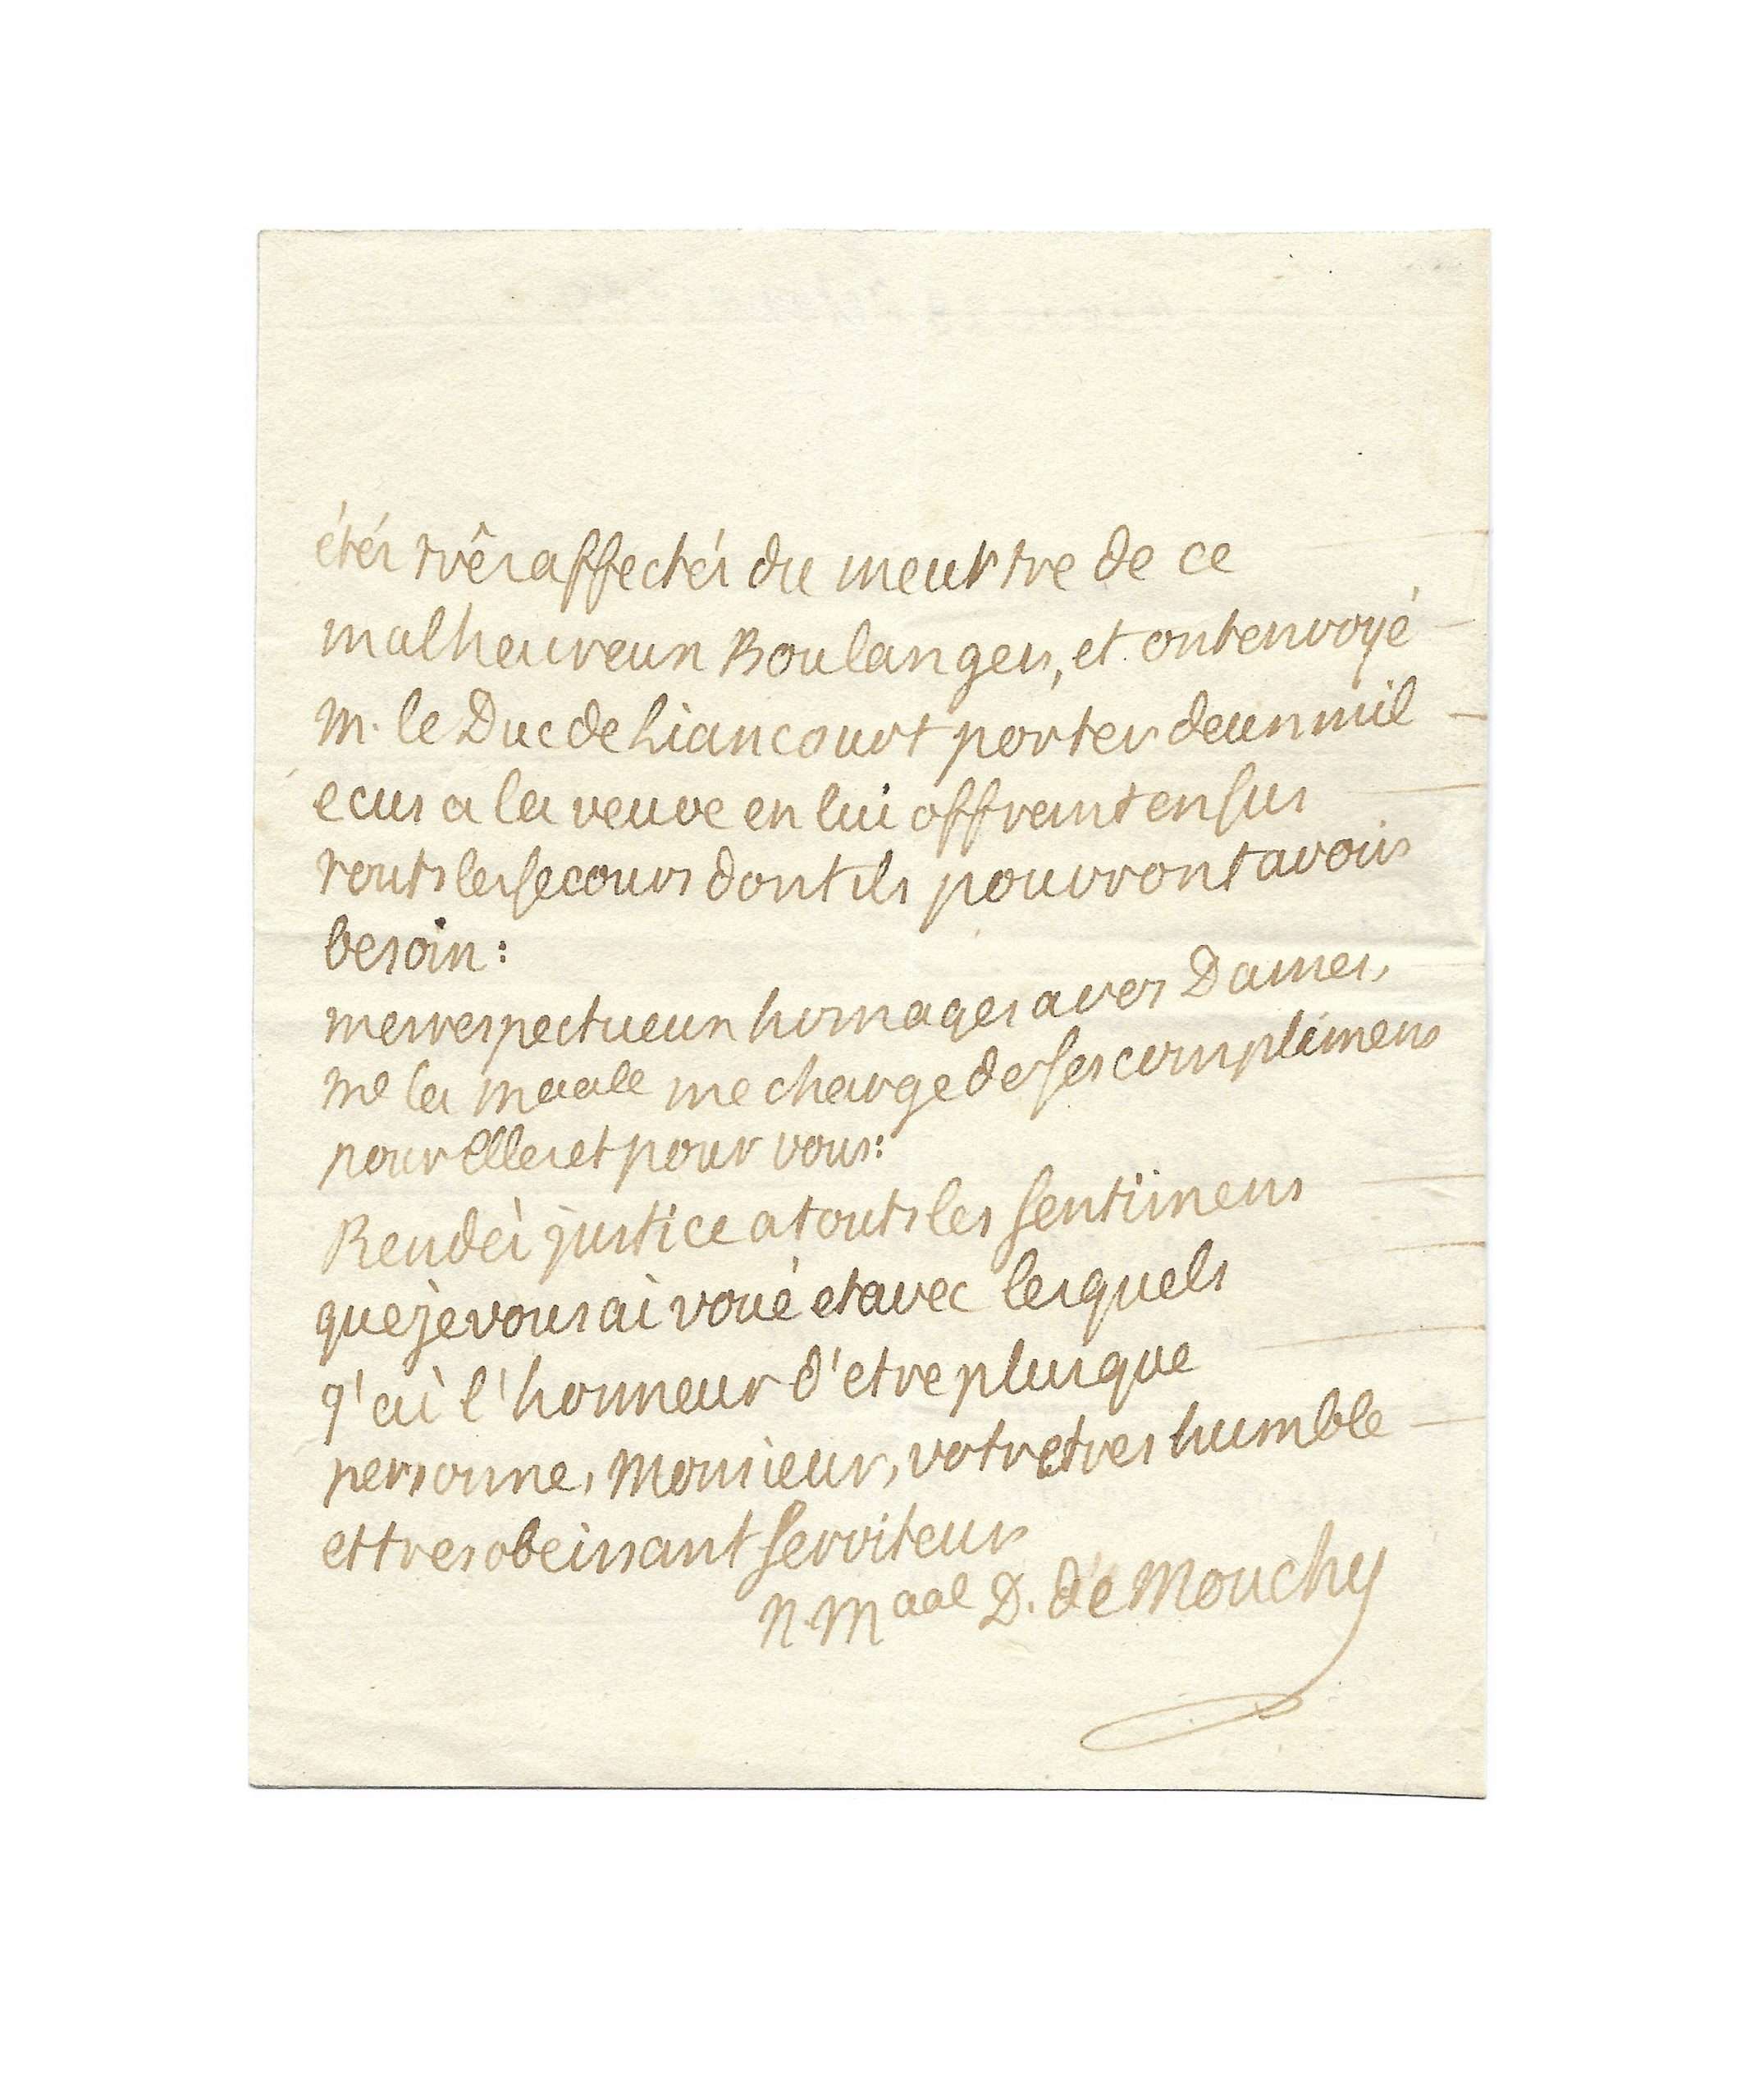 étés três affectés du meurtre de ce
malheureux Boulanger, et ont envoyé
M. le Duc de Liancourt porter deux mil
ecus a la veuve en lui offrant en sus
touts les secours dont ils pourront avoir
besoin:
mes respectueux homages a vos Dames,
Me la Maale me charge de ses complimens
pour Elles et pour vous:
Rendéz justice a touts les sentimens
que je vous ai voué et avec lesquels
j'ai l'honneur d'etre plus que
personne, Monsieur, votre tres humble
et tres obeissant serviteur
N. Maal D. de Mouchy